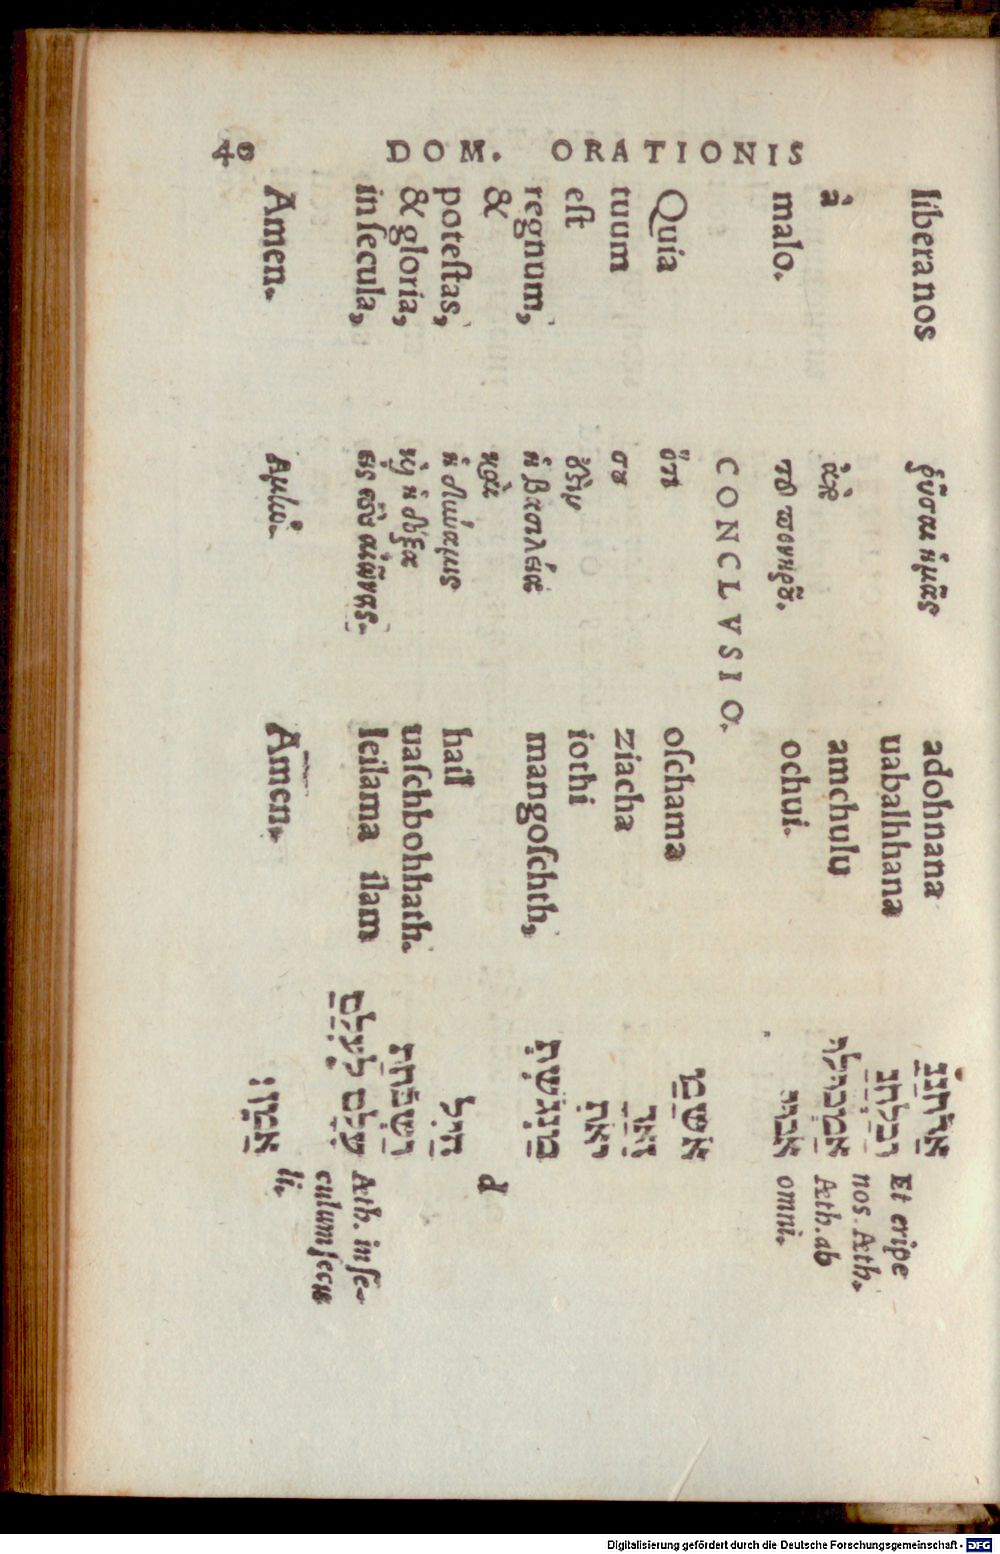 40 DOM. ORATIONIS
liberanos ῥῦσαι ἡμᾶς adohnana
uabalhhana Et eripe
à ἀπὸ amchulu nos. Æth.
Æth. ab
malo. τοῦ πονηροῦ. ochui. omni.
CONCLVSIO.
Quia ὅτι oſchama
tuum σου ziacha
eſt ἐστὶν iothi
regnum, ἡ βασιλεία mangoſchth,
& καὶ d
poteſtas, ἡ δύναμις hail
& gloria, καὶ ἡ δόξα uaſchbohhath.
in ſecula, εἰς τοὺς αἰῶνας. leilama ilam Æth. in ſe-
culum ſecu
Amen. Ἀμήν. Amen. אַמֶן׃ li.
Digitalisierung gefördert durch die Deutsche Forschungsgemeinschaft - DFG